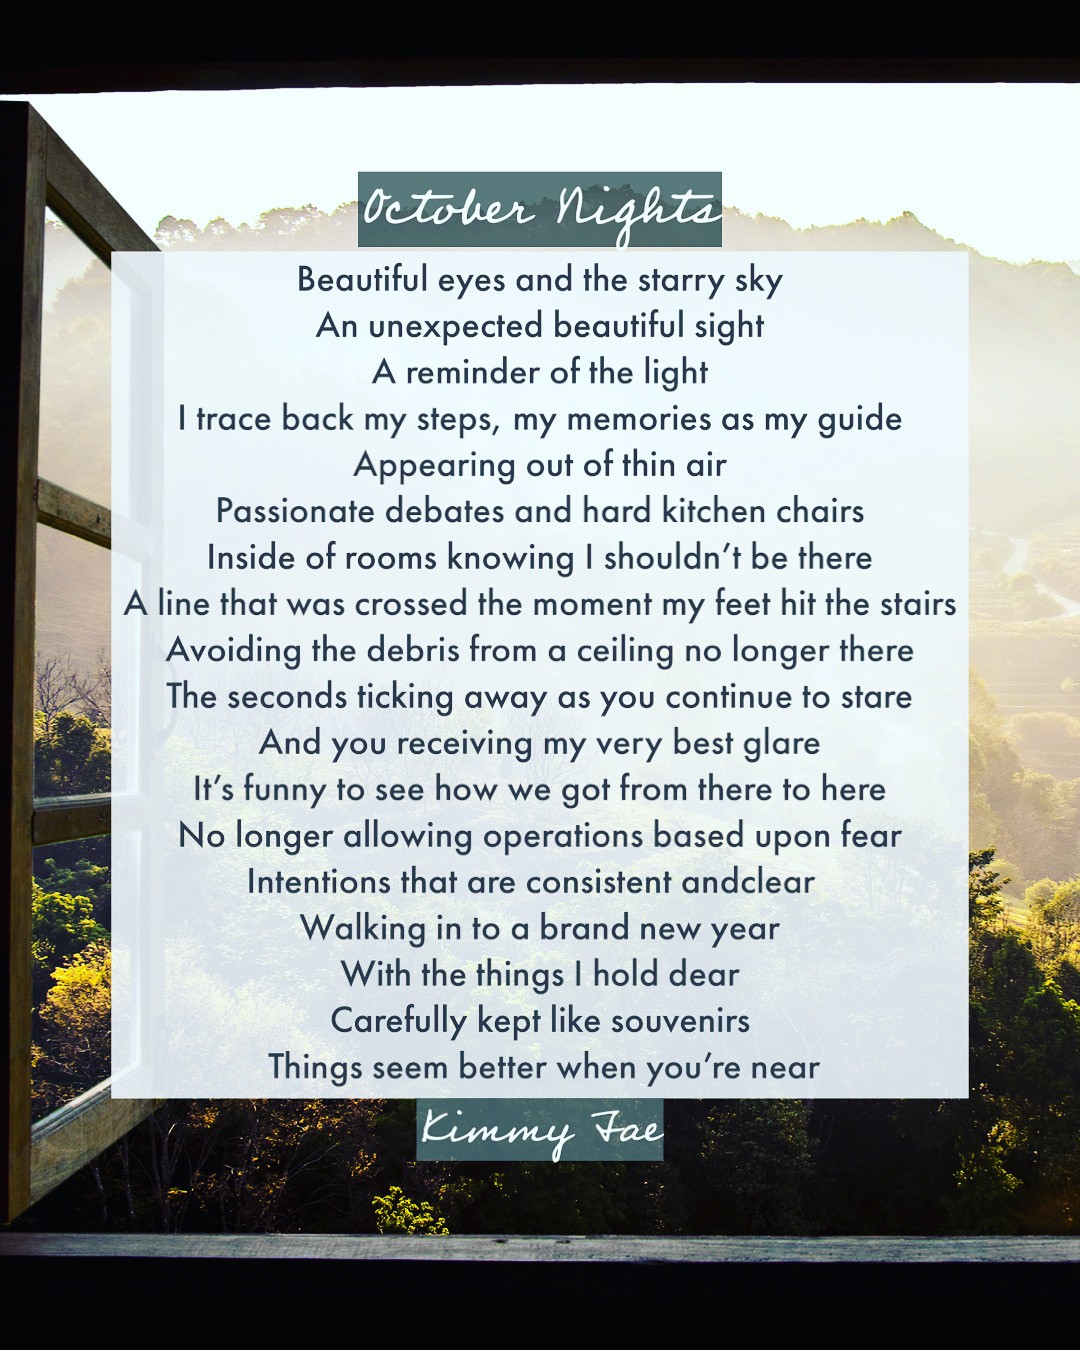 October Nights
Beautiful eyes and the starry sky
An unexpected beautiful sight
A reminder of the light
I trace back my steps, my memories as my guide
Appearing out of thin air
Passionate debates and hard kitchen chairs
Inside of rooms knowing I shouldn’t be there
A line that was crossed the moment my feet hit the stairs
Avoiding the debris from a ceiling no longer there
The seconds ticking away as you continue to stare
And you receiving my very best glare
It’s funny to see how we got from there to here
No longer allowing operations based upon fear
Intentions that are consistent andclear
Walking in to a brand new year
With the things I hold dear
Carefully kept like souvenirs
Things seem better when you’re near
Kimmy Fae